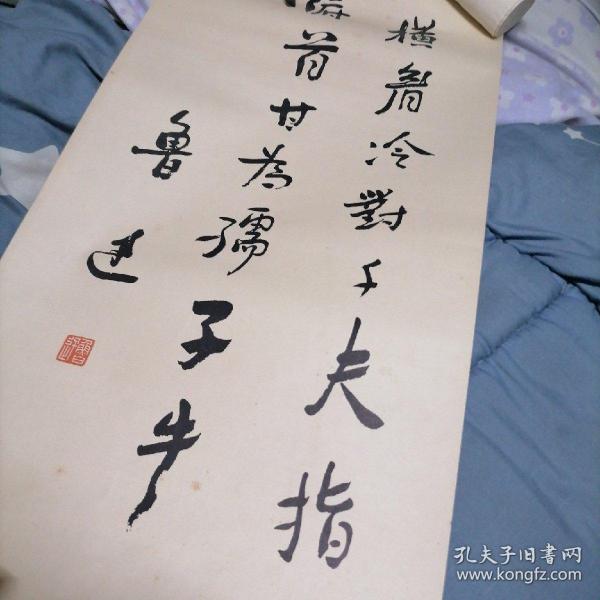 橫眉冷對千夫指
首甘為孺子牛
魯迅
孔夫子旧书网
www.kongfz.com